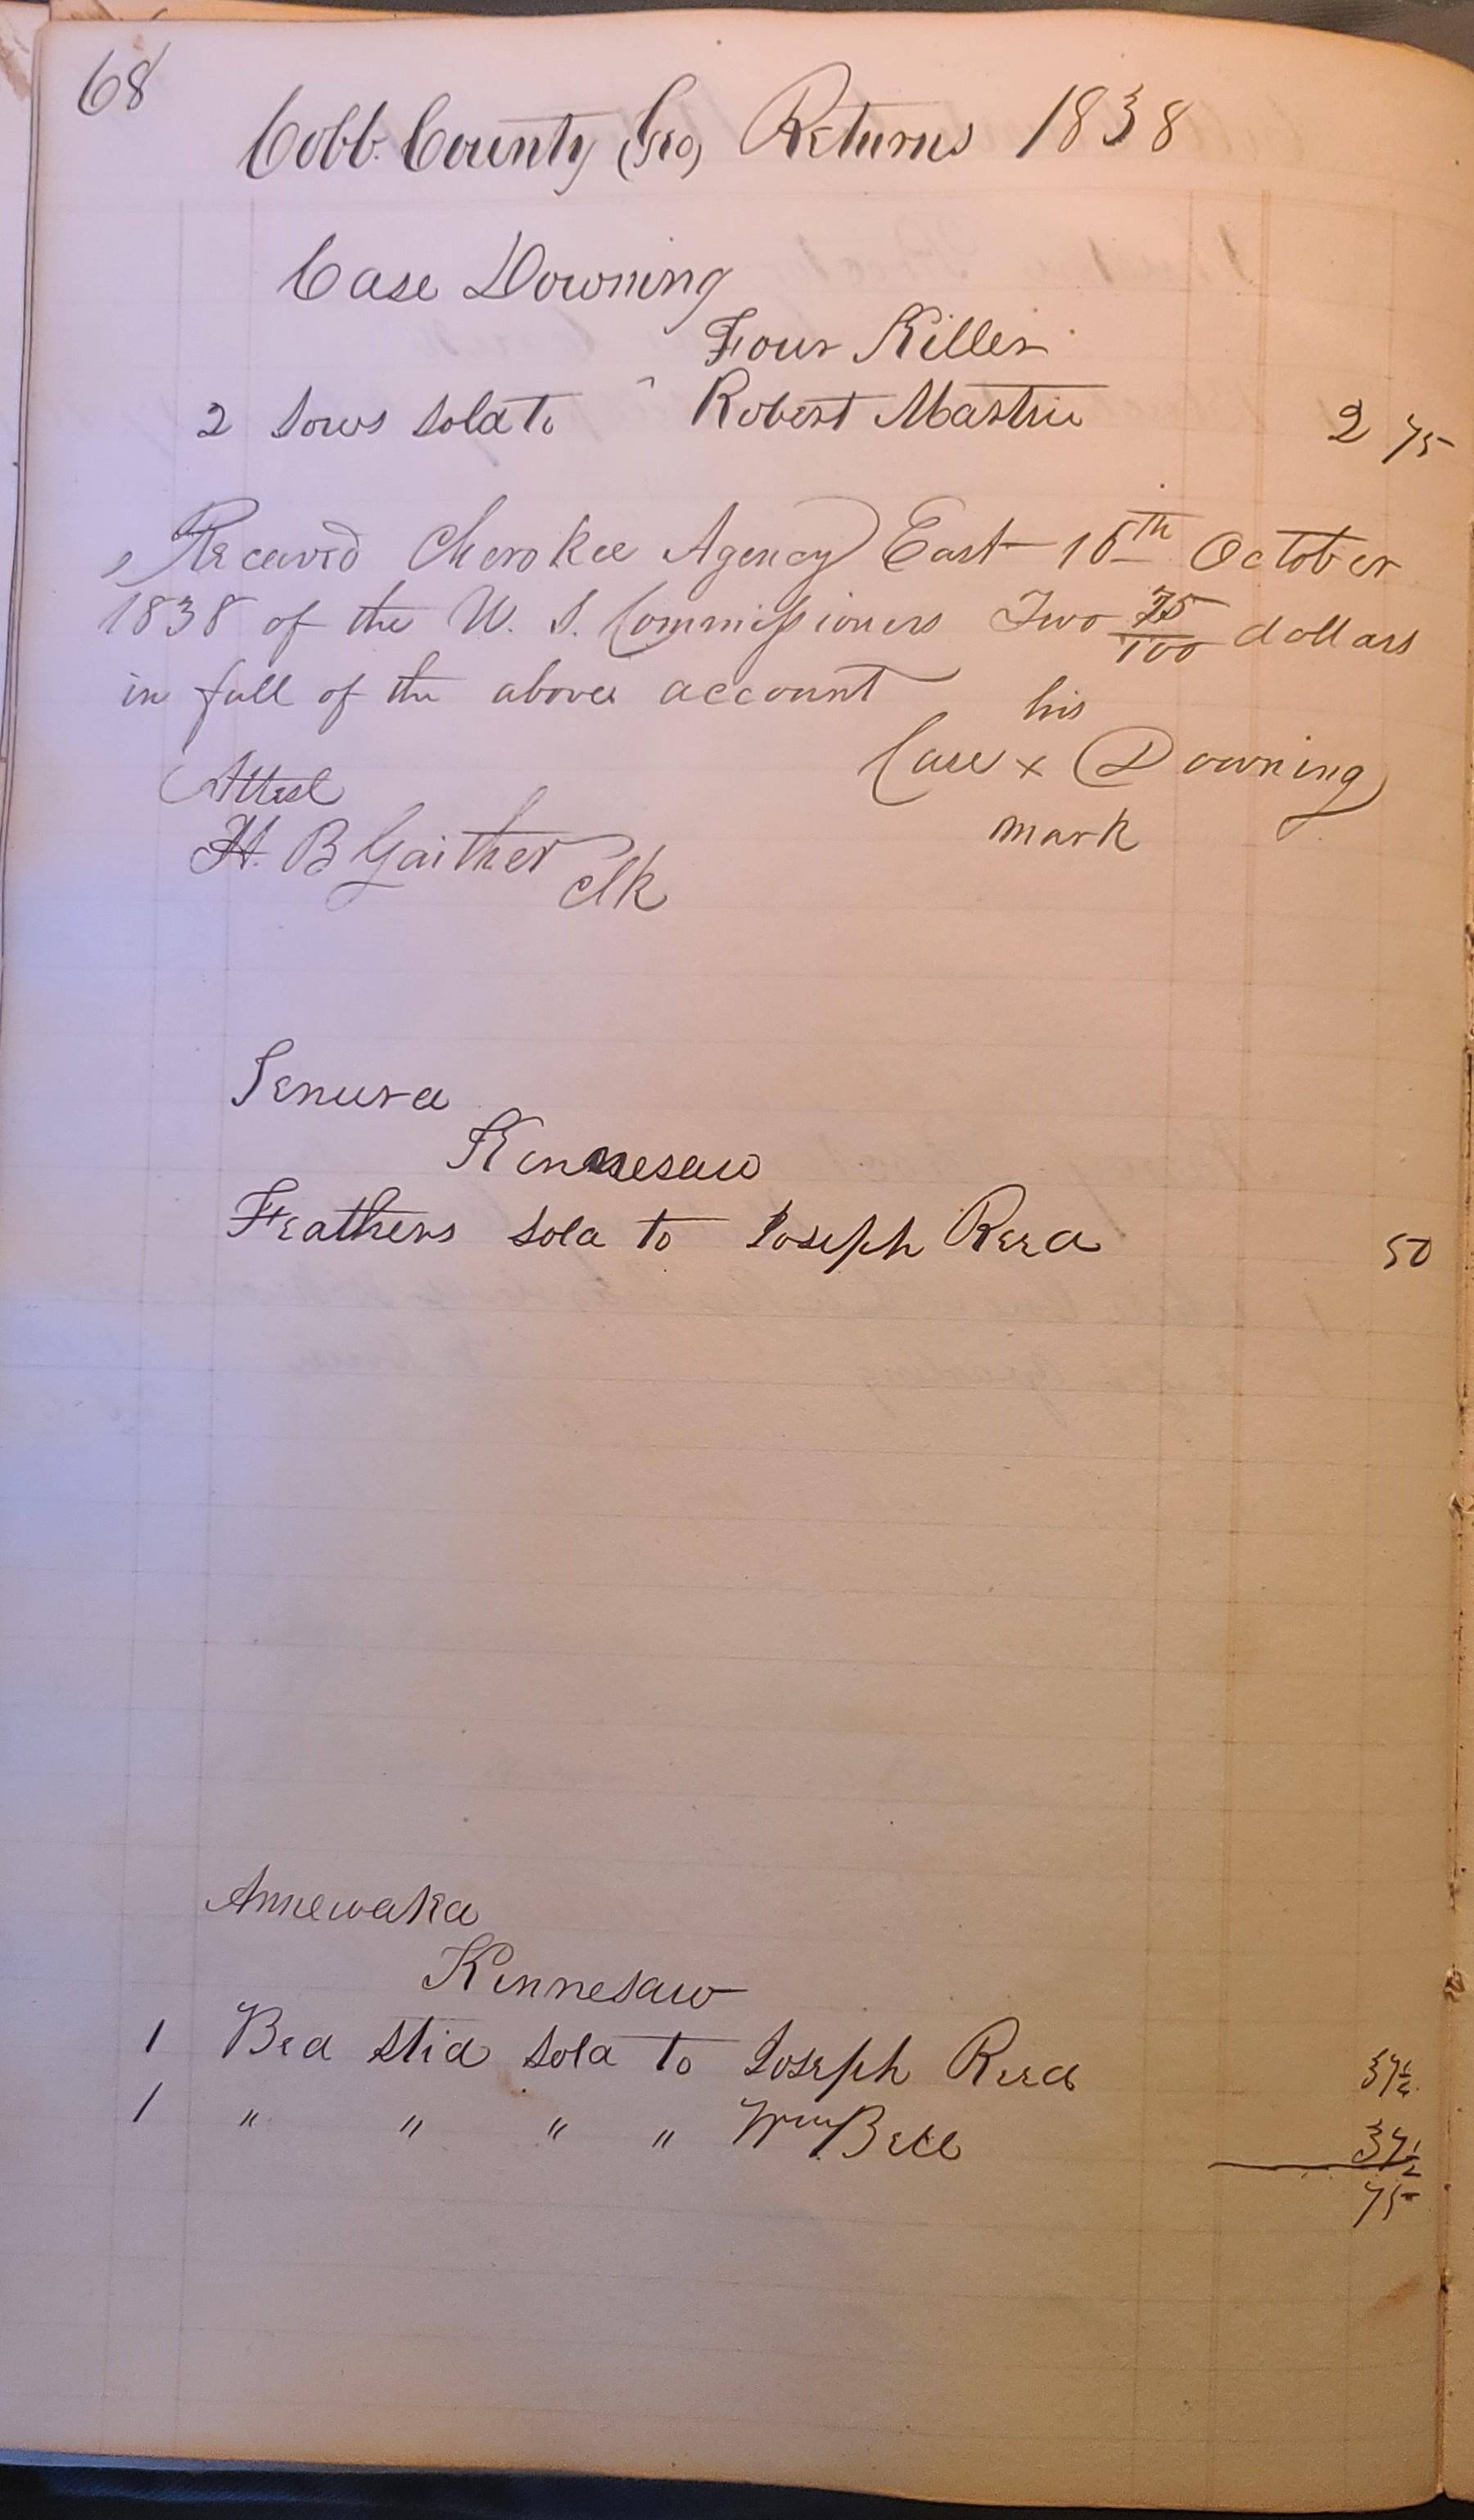 68
Cobb County (Geo) Returns 1838
Case Downing
Four Killer
2 Sows sold to " Robert Mastrie 2 75
Received Cherokee Agency East 16th October
1838 of the U. S. Commissioners Two 75/100 dollars
in full of the above account
his
Case x Downing
mark
Attest
H. B Gaither Clk
Senura
Kennesaw
Feathers sold to Joseph Reed 50
Annewaka
Kennesaw
1 Bed stid sold to Joseph Reed 37½
1 " " " " Wm Bell 37½
75